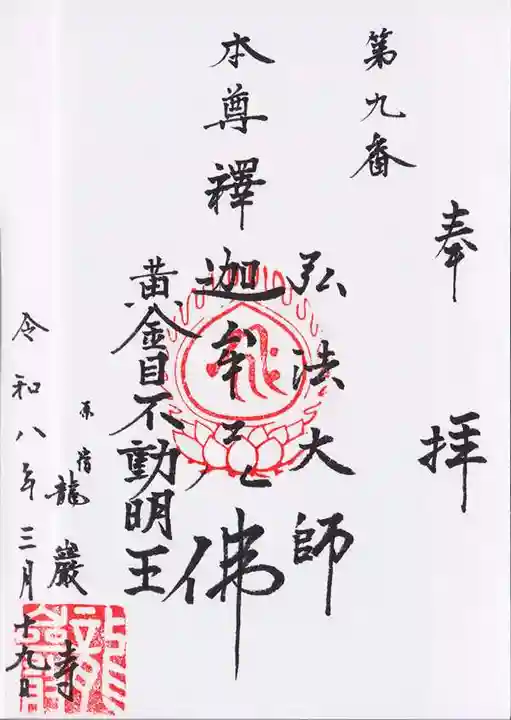 奉拝
第九番
弘法大師
本尊釋迦牟尼佛
黄金目不動明王
原宿龍巖寺
令和八年三月十九日